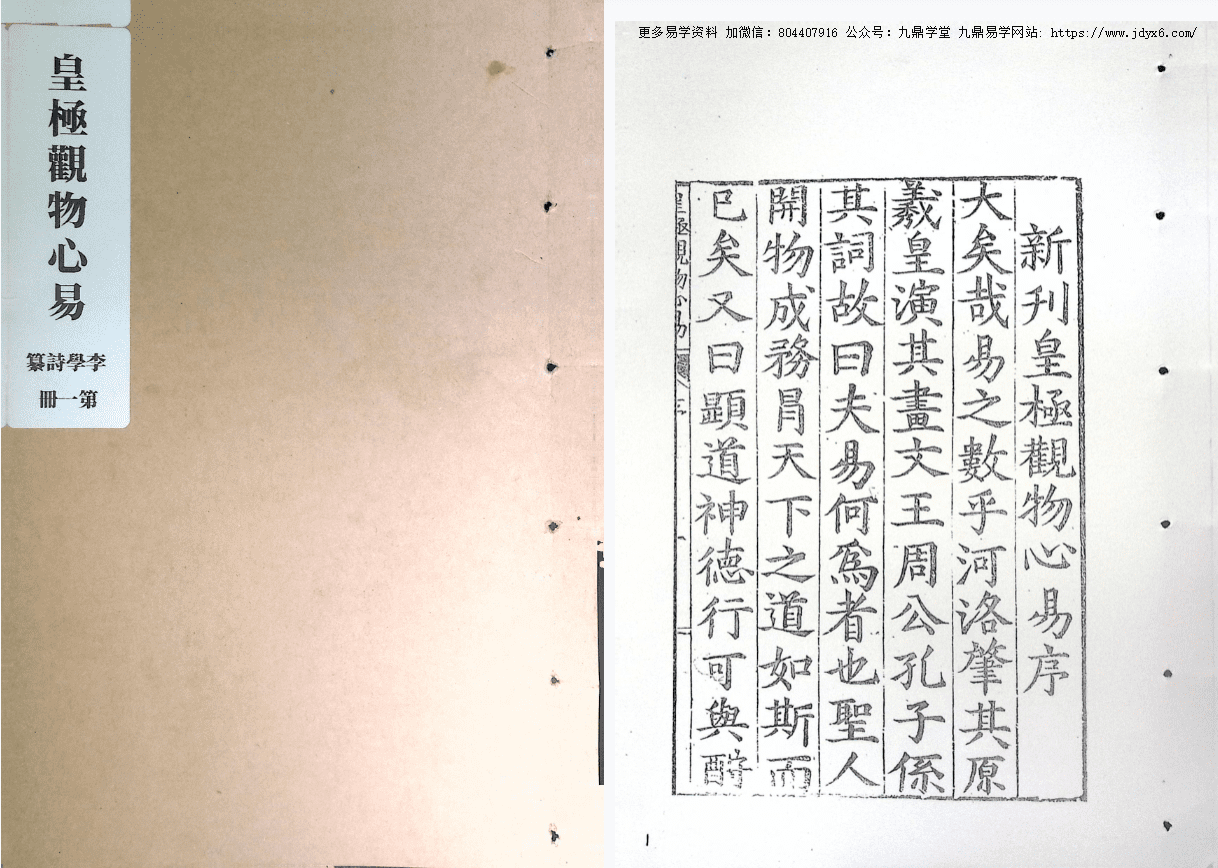 皇極觀物心易
李學詩纂
第一冊
更多易学资料 加微信：804407916 公众号：九鼎学堂 九鼎易学网站：https://www.jdyx6.com/
新刊皇極觀物心易序
大矣哉易之數乎河洛肇其原
羲皇演其畫文王周公孔子係
其詞故曰夫易何爲者也聖人
開物成務冐天下之道如斯而
已矣又曰顯道神德行可與酧
皇極觀物心易
1